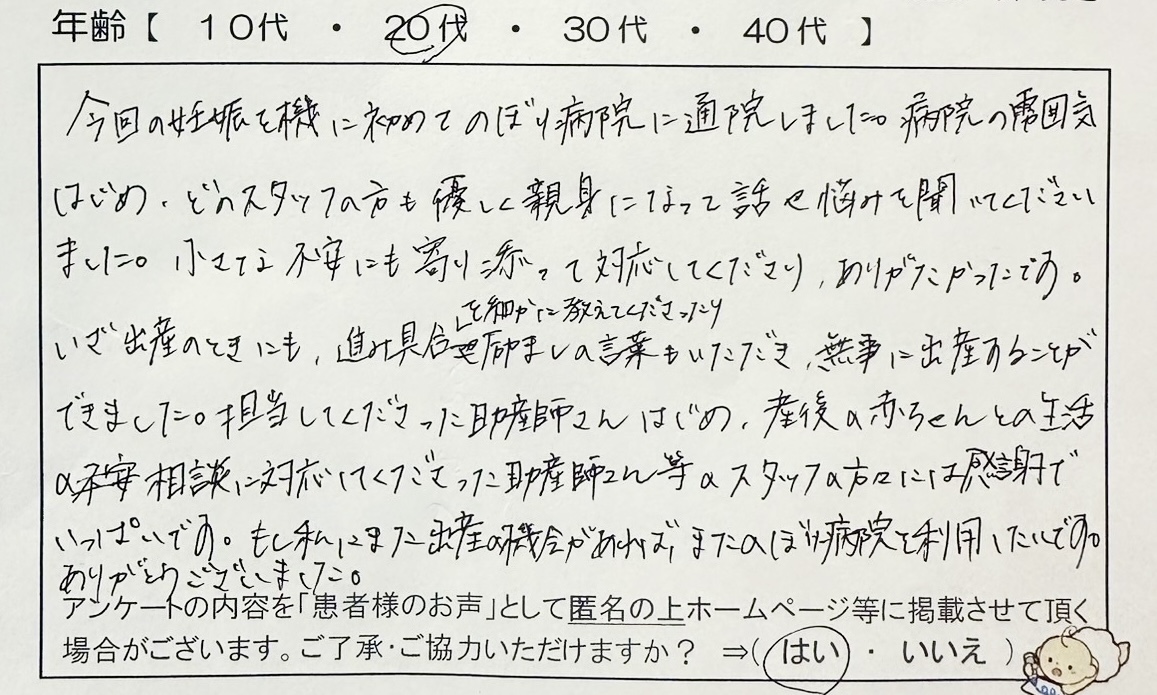 年齢【 10代 ・ 20代 ・ 30代 ・ 40代 】
今回の妊娠を機に初めてのぼり病院に通院しました。病院の雰囲気
はじめ、どのスタッフの方も優しく親身になって話や悩みを聞いてください
ました。小さな不安にも寄り添って対応してくださり、ありがたかったです。
を細かに教えてくださったり
いざ出産のときにも、進み具合や励ましの言葉もいただき、無事に出産することが
できました。担当してくださった助産師さんはじめ、産後の赤ちゃんとの生活
の不安相談に対応してくださった助産師さん等のスタッフの方々には感謝で
いっぱいです。もし私にまた出産の機会があれば、またのぼり病院を利用したいです。
ありがとうございました。
アンケートの内容を「患者様のお声」として匿名の上ホームページ等に掲載させて頂く
場合がございます。ご了承・ご協力いただけますか？ ⇒( はい ・ いいえ )